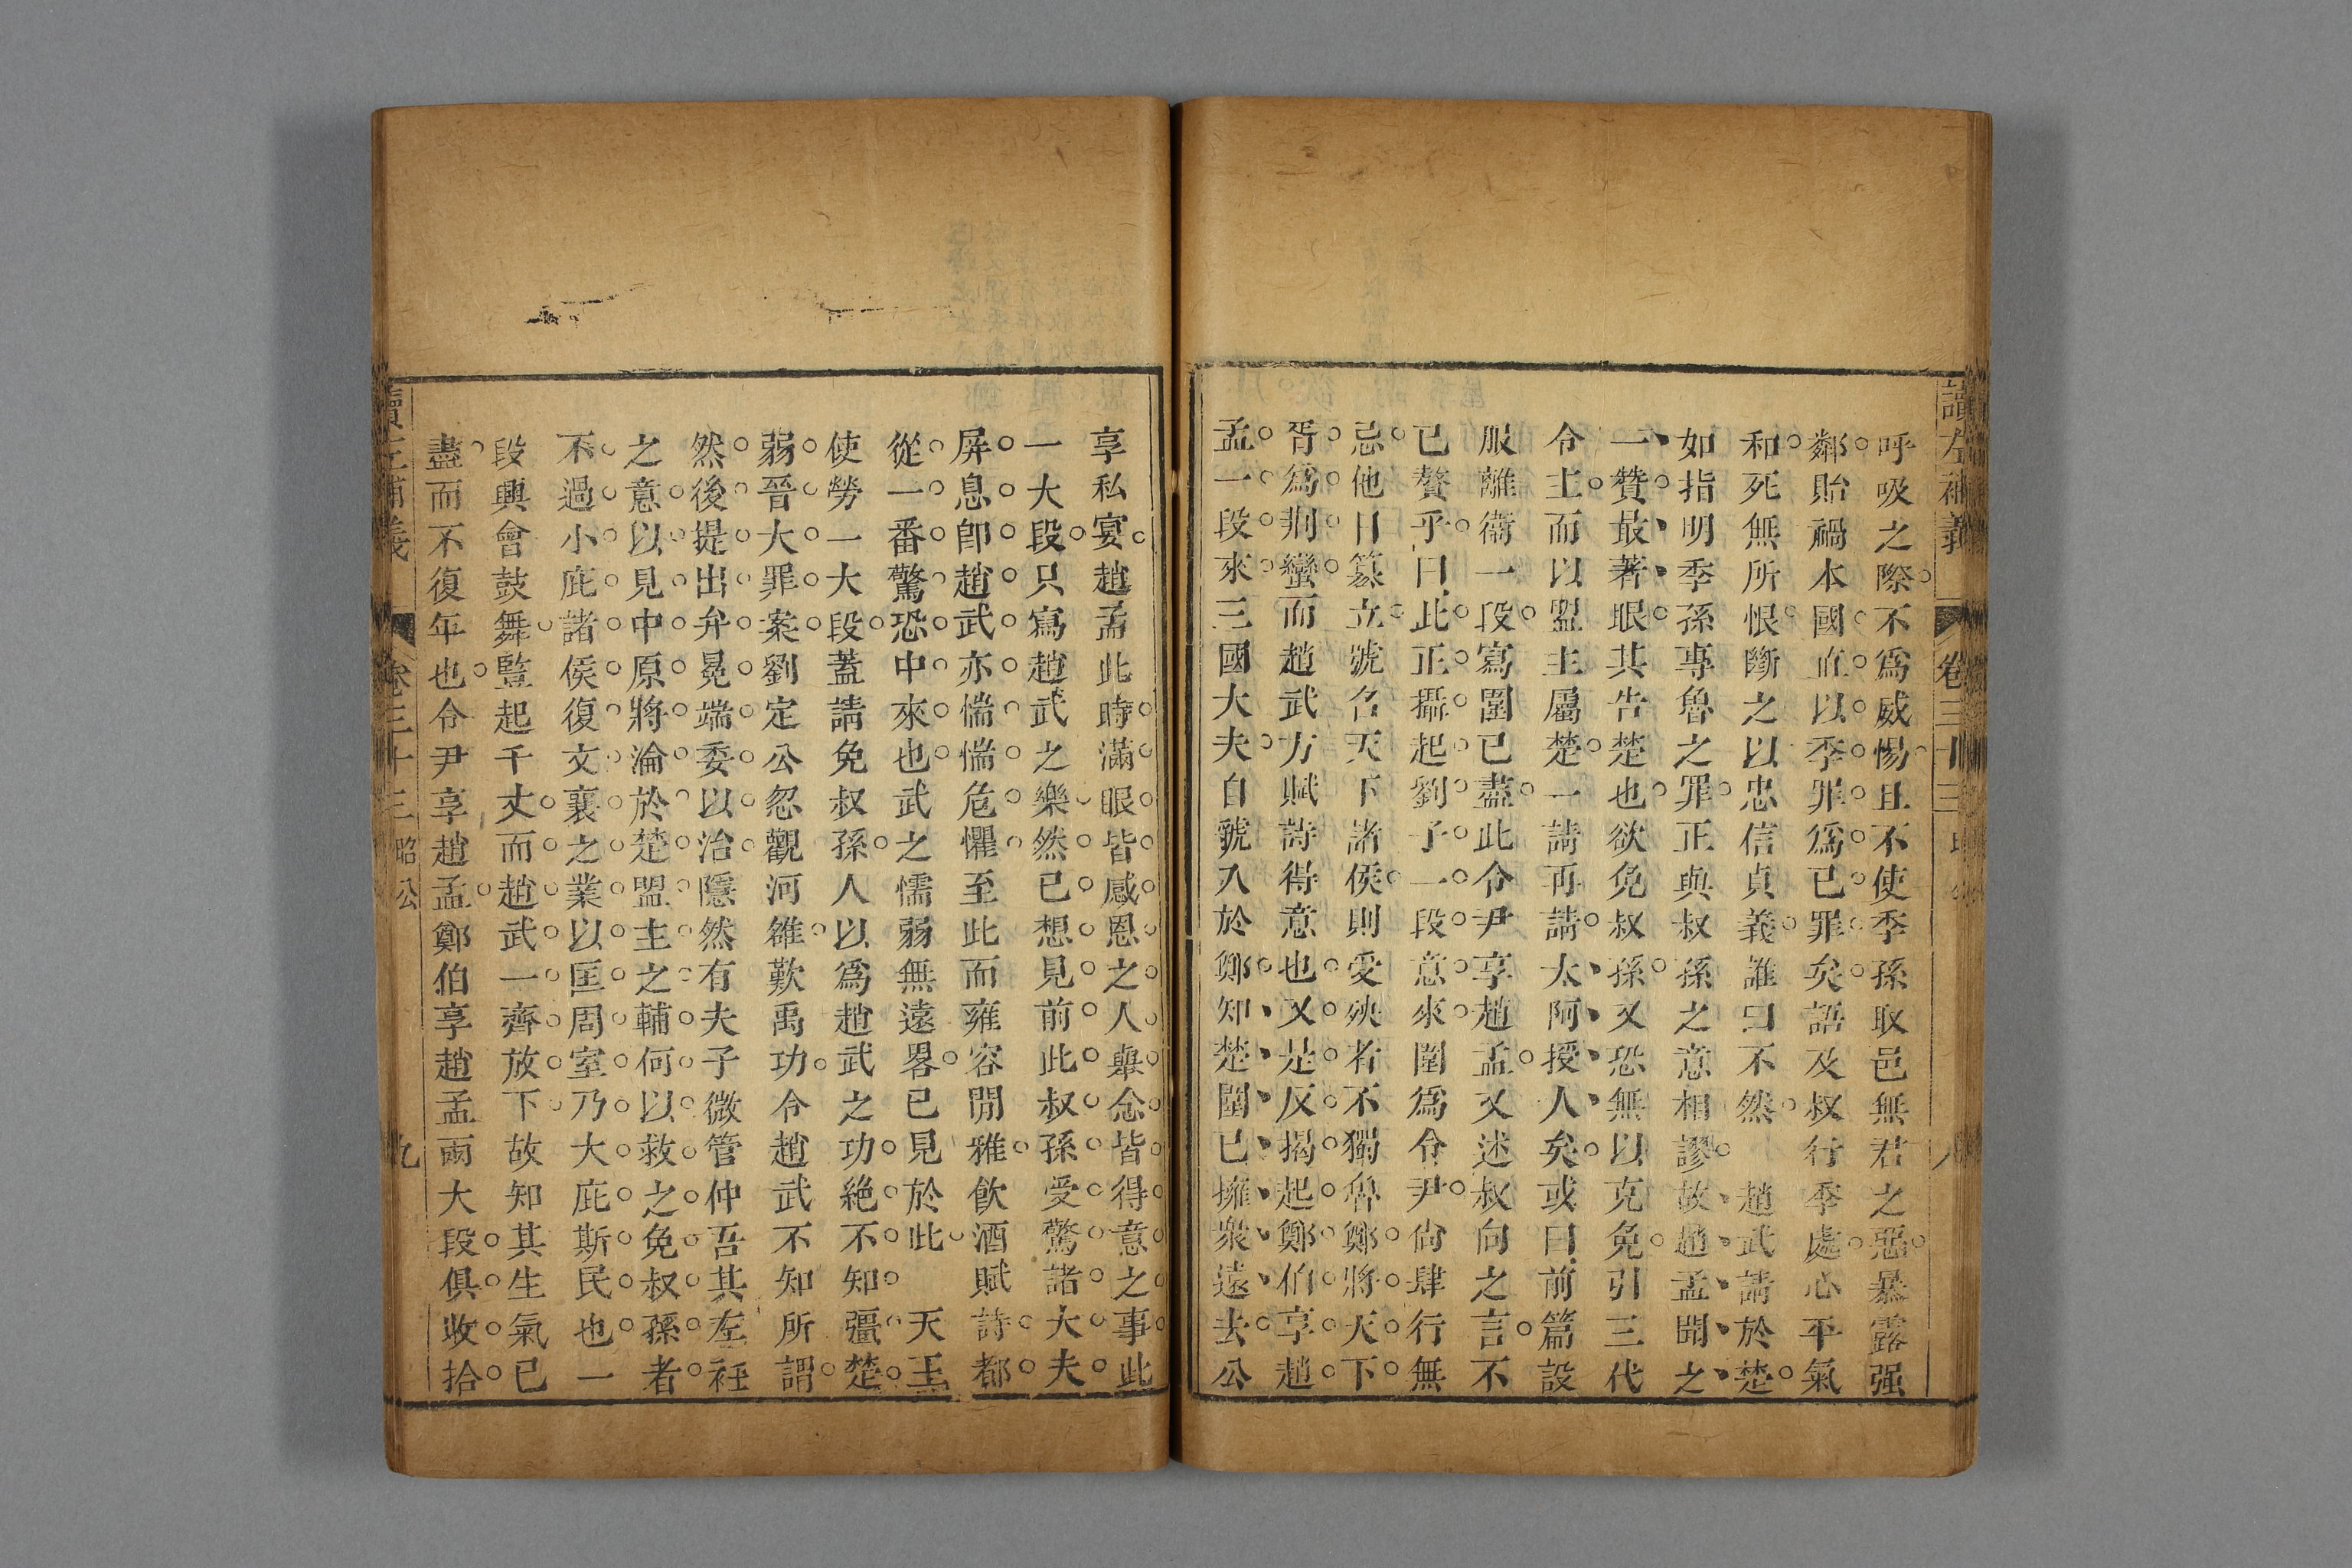 讀左補義 卷三十三 八
呼吸之際不爲威惕且不使季孫取邑無君之惡暴露强
鄰貽禍本國直以季罪爲已罪矣語及叔行季處心平氣
和死無所恨斷之以忠信貞義誰曰不然 趙武請於楚
如指明季孫專魯之罪正與叔孫之意相謬故趙孟聞之
一贊最著眼其告楚也欲免叔孫又恐無以克免引三代
令主而以盟主屬楚一請再請太阿授人矣或曰前篇設
服離衞一段寫圍已盡此令尹享趙孟又述叔向之言不
已贅乎曰此正攝起劉子一段意來圍爲令尹尙肆行無
忌他日篡立號名天下諸侯則受殃者不獨魯鄭將天下
胥爲荆蠻而趙武方賦詩得意也又是反揭起鄭伯享趙
孟一段來三國大夫自虢入於鄭知楚圍已擁衆遠去公
享私宴趙孟此時滿眼皆感恩之人舉念皆得意之事此
一大段只寫趙武之樂然已想見前此叔孫受驚諸大夫
屏息卽趙武亦惴惴危懼至此而雍容閒雅飮酒賦詩都
從一番驚恐中來也武之懦弱無遠畧已見於此 天王
使勞一大段蓋請免叔孫人以爲趙武之功絶不知彊楚
弱晉大罪案劉定公忽觀河雒歎禹功令趙武不知所謂
然後提出弁冕端委以治隱然有夫子微管仲吾其左衽
之意以見中原將淪於楚盟主之輔何以救之免叔孫者
不過小庇諸侯復文襄之業以匡周室乃大庇斯民也一
段興會鼓舞豎起千丈而趙武一齊放下故知其生氣已
盡而不復年也令尹享趙孟鄭伯享趙孟兩大段俱收拾
讀左補義 卷三十三 昭公 九